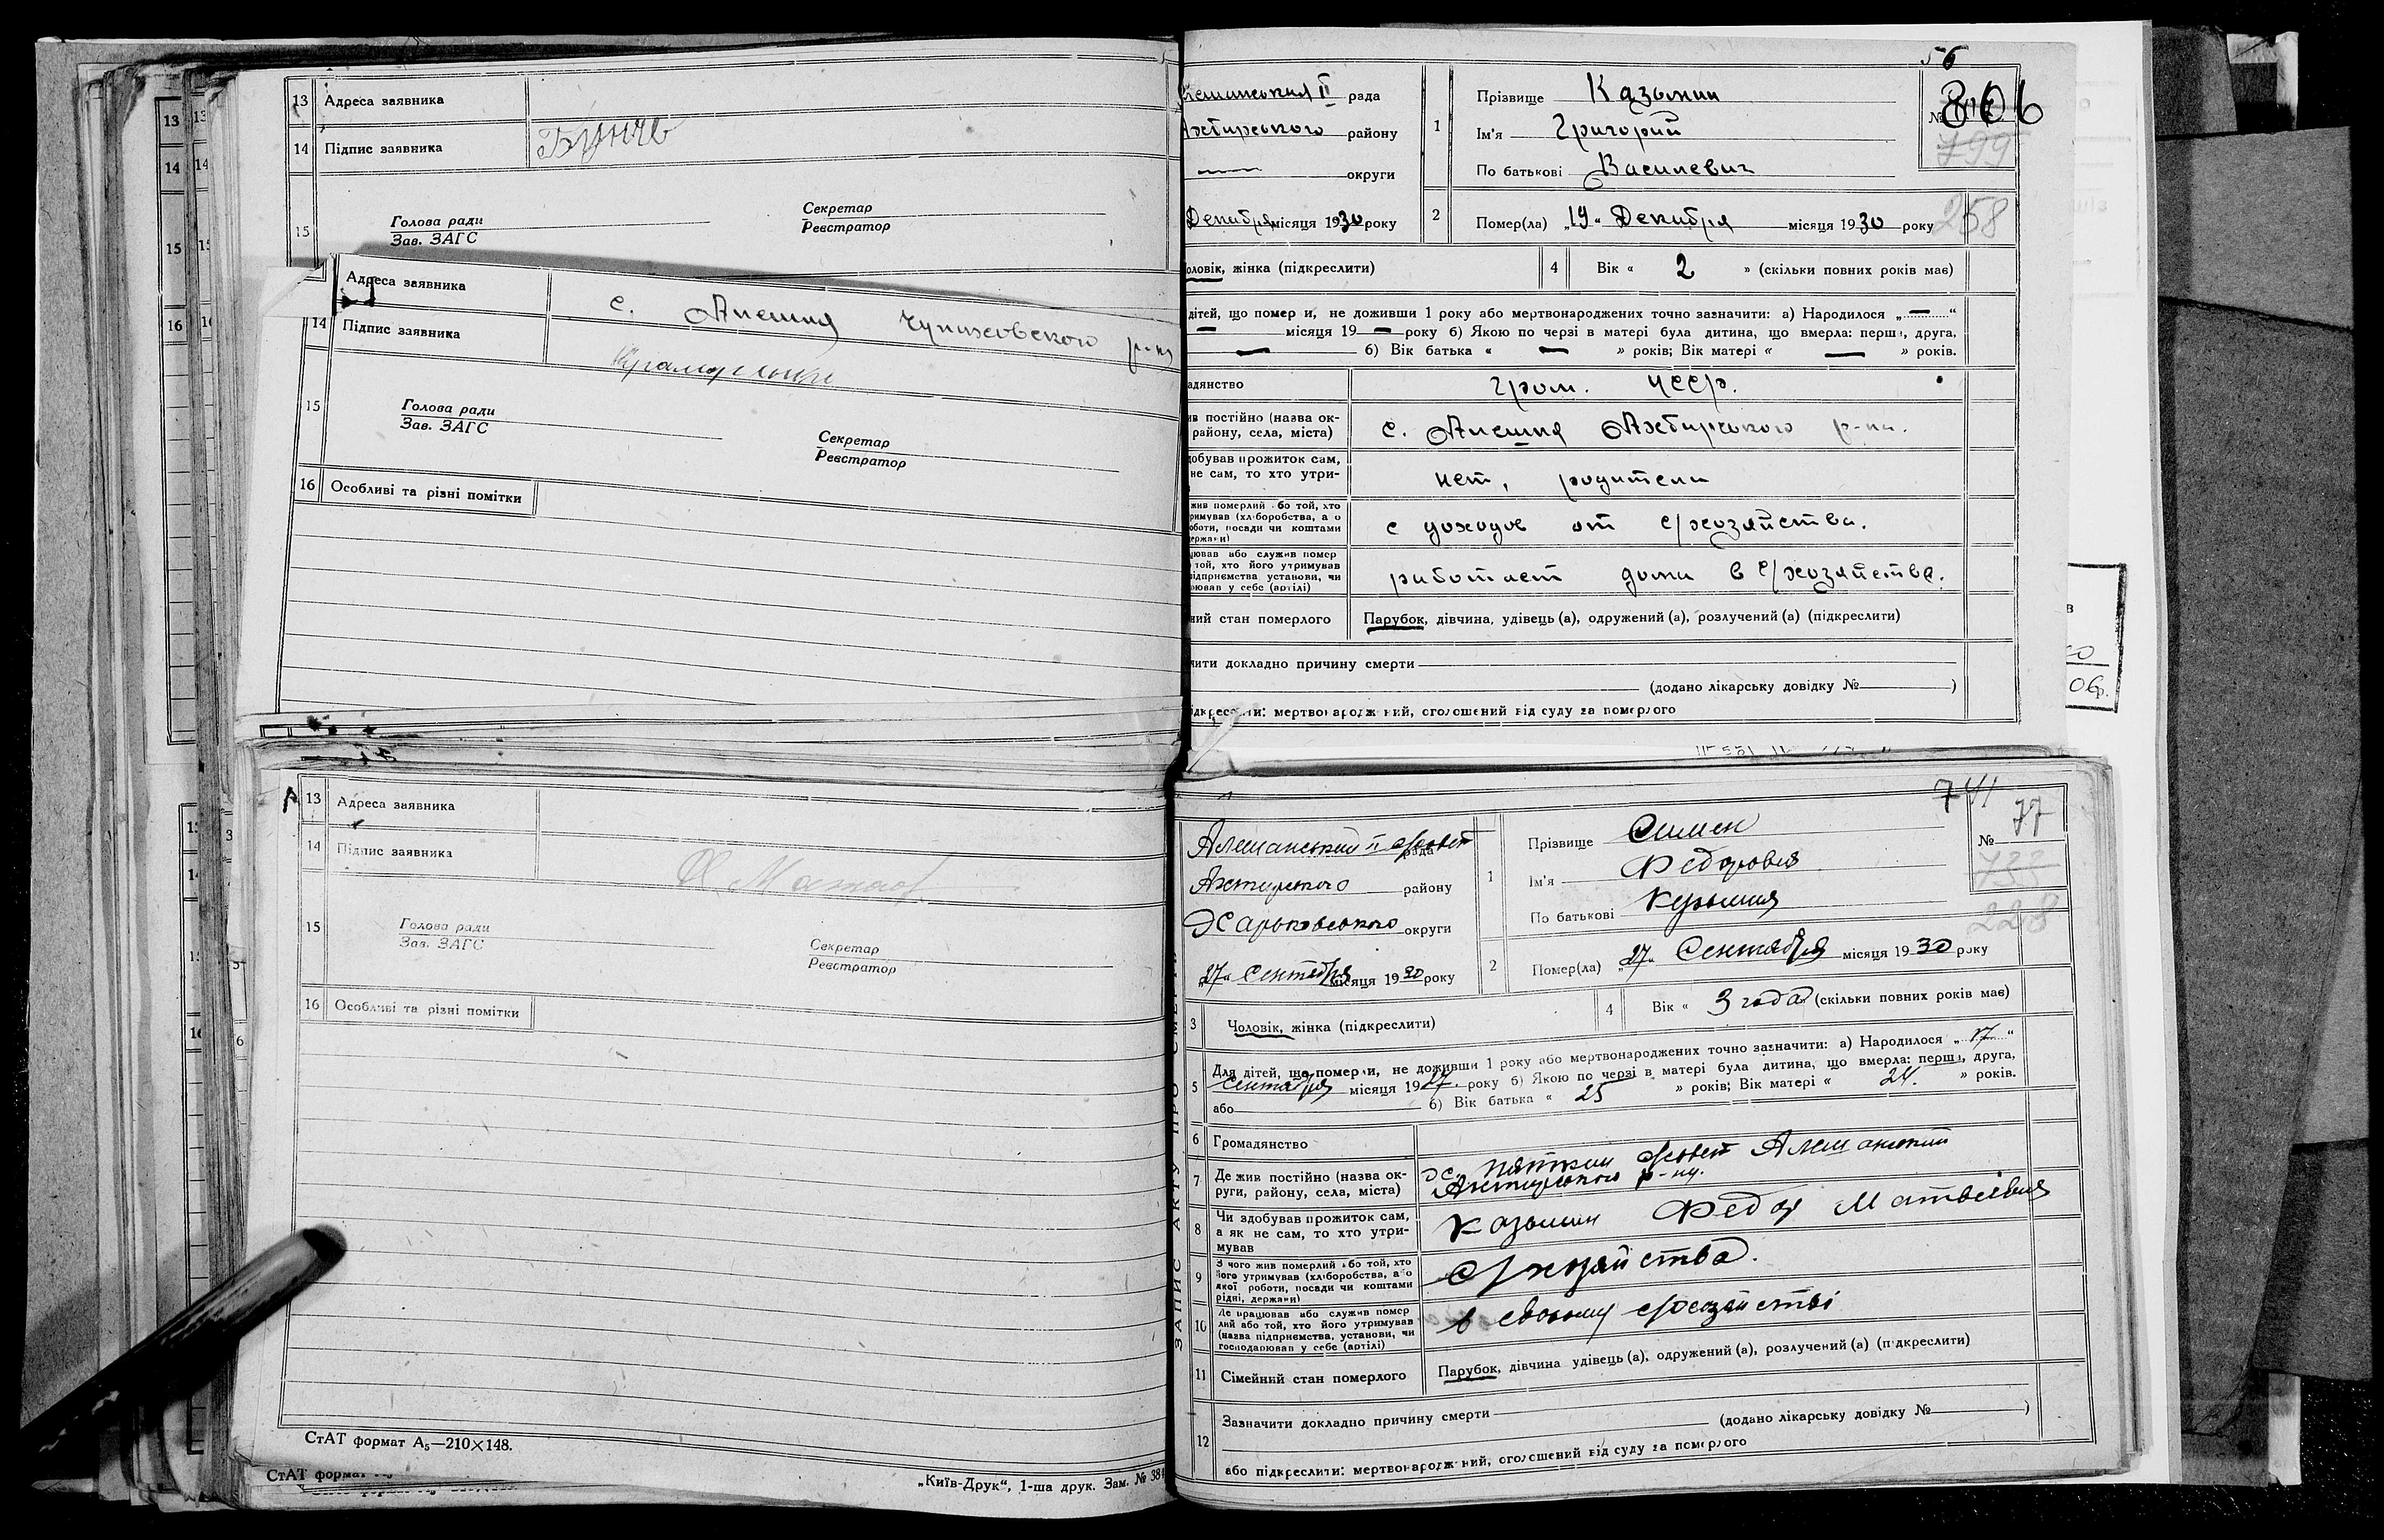 13 Адреса заявника
14 Підпис заявника
15
Голова ради
Зав. ЗАГС
Секретар
Реєстратор
Адреса заявника с. Алешня Чупаховского р-на
14 Підпис заявника
15
Голова ради
Зав. ЗАГС
Секретар
Реєстратор
16 Особливі та різні помітки
13 Адреса заявника
14 Підпис заявника
15
Голова ради
Зав. ЗАГС
Секретар
Реєстратор
16 Особливі та різні помітки
СтАТ формат А5—210×148.
СтАТ формат
„Київ-Друк“, 1-ша друк. Зам. № 384
56
рада
Ахтирського району
округи
Декабря місяця 1930 року
1
Прізвище Казьмин
Ім'я Григорий
По батькові Василевич
№ 806
799
2 Помер(ла) „19“ Декабря місяця 1930 року
258
оловік, жінка (підкреслити)
4 Вік « 2 » (скільки повних років має)
дітей, що померли, не доживши 1 року або мертвонароджених точно зазначити: а) Народилося „—“
— місяця 19— року б) Якою по черзі в матері була дитина, що вмерла: перша, друга,
— б) Вік батька « — » років; Вік матері « — » років.
адянство гром. УССР.
ив постійно (назва ок-
району, села, міста) с. Алешня Ахтирського р-на.
добував прожиток сам,
не сам, то хто утри- нет, родители
жив померлий або той, хто
римував (хліборобства, а о
оботи, посади чи коштами
ержави) с доходов от с/хозяйства.
ював або служив помер
той, хто його утримував
ідприємства, установи, чи
рював у себе (артілі) работает дома в с/хозяйстве.
ний стан померлого Парубок, дівчина, удівець(а), одружений(а), розлучений(а) (підкреслити)
чити докладно причину смерти
(додано лікарську довідку № )
ідкреслити: мертвонароджений, оголошений від суду за померлого
741
Алешанський II рада
Ахтирського району
Харьковського округи
„27“ Сентября місяця 1930 року
1
Прізвище Симен
Ім'я Федоровия
По батькові
№ 77
733
228
2 Помер(ла) „27“ Сентября місяця 1930 року
3 Чоловік, жінка (підкреслити)
4 Вік « 3 года (скільки повних років має)
5 Для дітей, що померли, не доживши 1 року або мертвонароджених точно зазначити: а) Народилося „17“
Сентября місяця 1927 року б) Якою по черзі в матері була дитина, що вмерла: перша, друга,
або б) Вік батька « 25 » років; Вік матері « 24. » років.
6 Громадянство
7 Де жив постійно (назва ок-
руги, району, села, міста) Алешанский
Ахтирського р-ну.
8 Чи здобував прожиток сам,
а як не сам, то хто утри-
мував Казьмин Федор Матвеевия
9 З чого жив померлий або той, хто
його утримував (хліборобства, а о
якої роботи, посади чи коштами
рідні, держави) с/хозяйства.
10 Де працював або служив помер
лий або той, хто його утримував
(назва підприємства, установи, чи
господарював у себе (артілі) в своєму с/хозяйстві
11 Сімейний стан померлого Парубок, дівчина удівець(а), одружений(а), розлучений(а) (підкреслити)
12 Зазначити докладно причину смерти
(додано лікарську довідку № )
або підкреслити: мертвонароджений, оголошений від суду за померлого
ЗАПИС АКТУ ПРО СМЕРТЬ